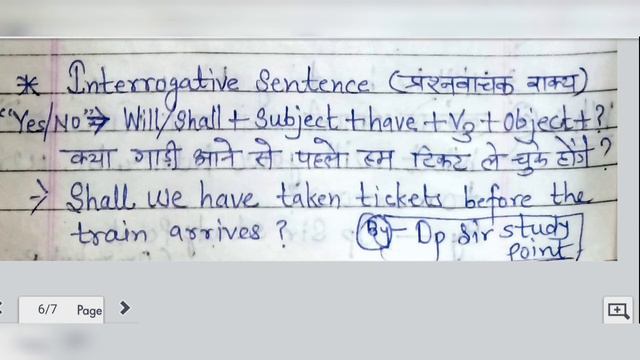 * Interrogative Sentence (प्रश्नवाचक वाक्य)
"Yes/No" ⇒ Will/Shall + Subject + have + V3 + Object + ?
क्या गाड़ी आने से पहले हम टिकट ले चुके होंगे ?
→ Shall we have taken tickets before the
train arrives ?
By - Dp Sir study
point
6/7 Page